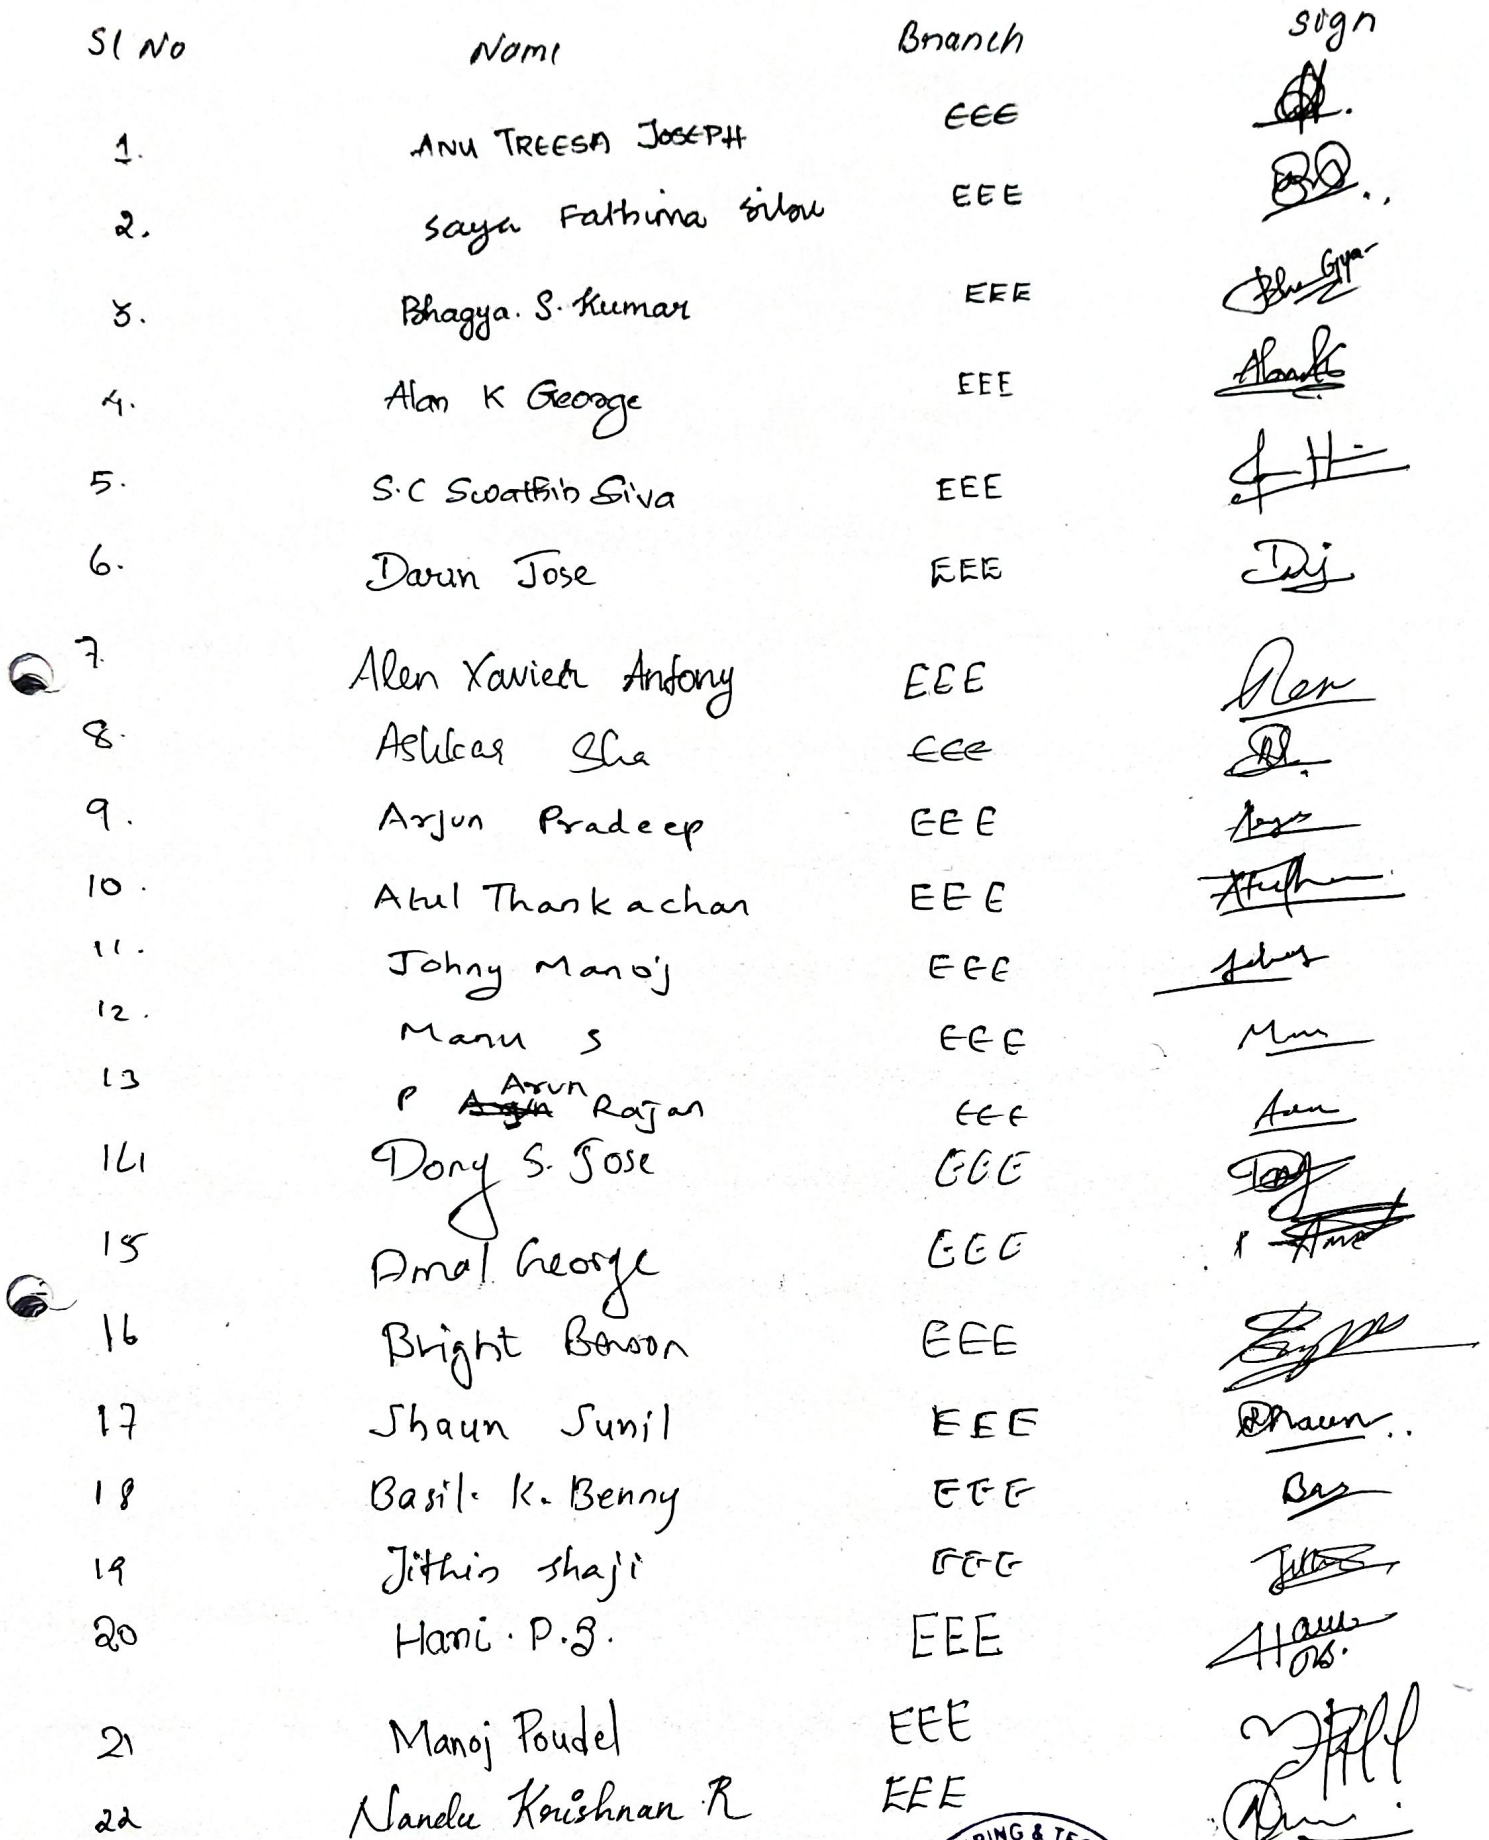 Sl No Name Branch Sign
1. ANU TREESA JOSEPH EEE
2. Saya Fathima EEE
3. Bhagya. S. Kumar EEE
4. Alan K George EEE Alan
5. S.C Swathin Siva EEE
6. Darin Jose EEE
7. Alen Xavier Antony EEE Alen
8. Ashkar Sha EEE
9. Arjun Pradeep EEE
10. Atul Thankachan EEE
11. Johny Manoj EEE
12. Manu S EEE
13 P Arun Rajan EEE
14 Dony S. Jose EEE Dony
15 Amal George EEE
16 Bright Benson EEE
17 Shaun Sunil EEE Shaun
18 Basil. K. Benny EEE Bas
19 Jithin shaji EEE
20 Hani. P.B. EEE
21 Manoj Poudel EEE
22 Nandu Krishnan R EEE
RING & TE